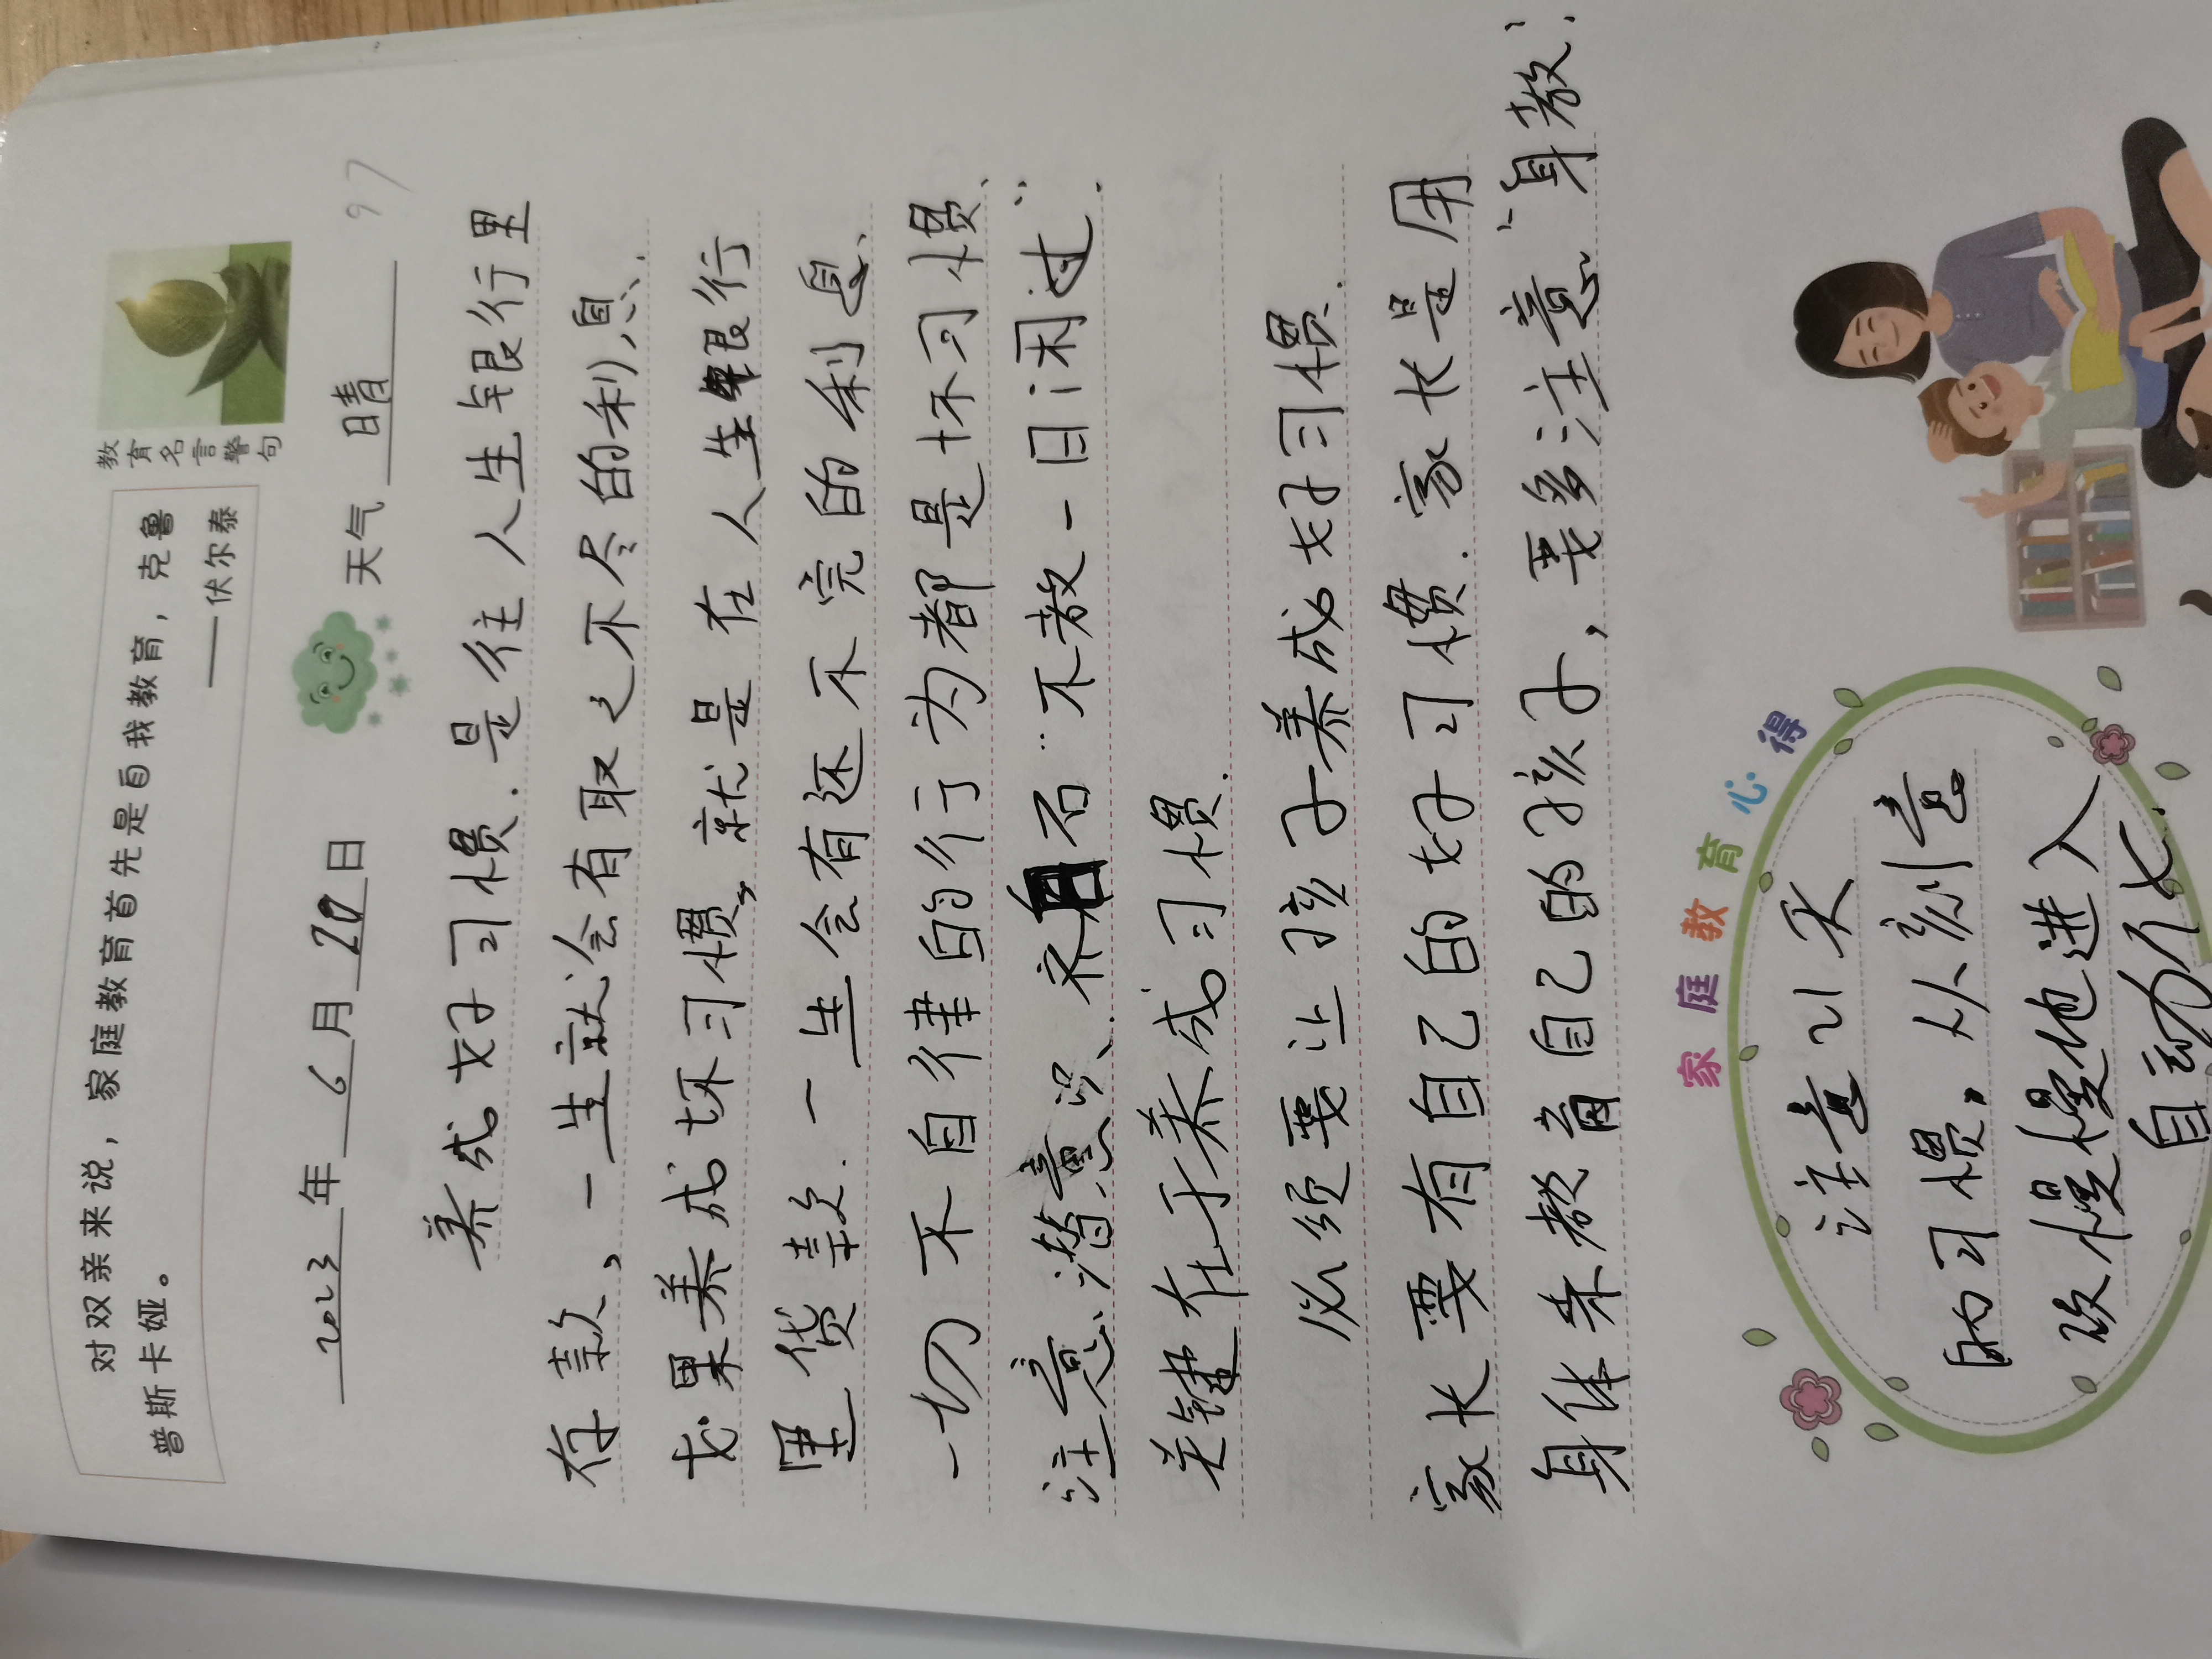 教育名言警句
对双亲来说，家庭教育首先是自我教育，克鲁
普斯卡娅。
——伏尔泰
2023年6月20日 天气 晴
97
养成好习惯.是往人生银行里
存款、一生就会有取之不尽的利息.
如果养成坏习惯、就是在人生银行
里贷款.一生会有还不完的利息、
一切不自律的行为都是坏习惯、
注意潜意识、齐白石“不教一日闲过”.
关键在于养成习惯.
必须要让孩子养成好习惯.
家长要有自己的好习惯.家长是用
身体来教育自己的孩子，要多注意“身教”.
家庭教育心得
注意以来
的习惯、从刻意
改慢慢地进入
自动化.